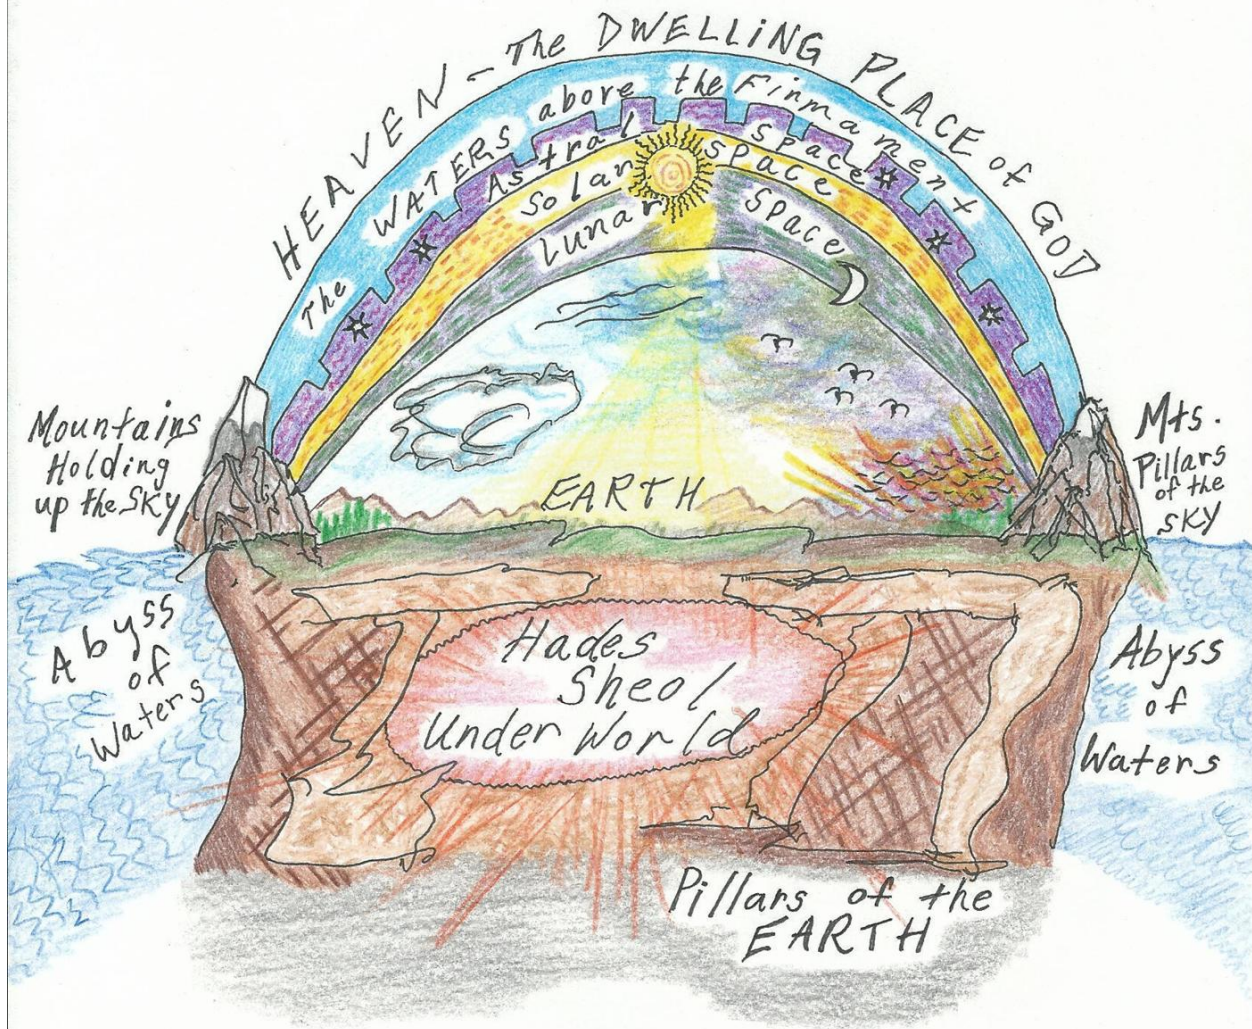 HEAVEN - The DWELLING PLACE of GOD
The WATERS above the Firmament
Astral Space
Solar Space
Lunar Space
Mountains
Holding
up the SKY
Mts.
Pillars
of the
SKY
EARTH
Abyss
of
Waters
Hades
Sheol
Under World
Abyss
of
Waters
Pillars of the
EARTH